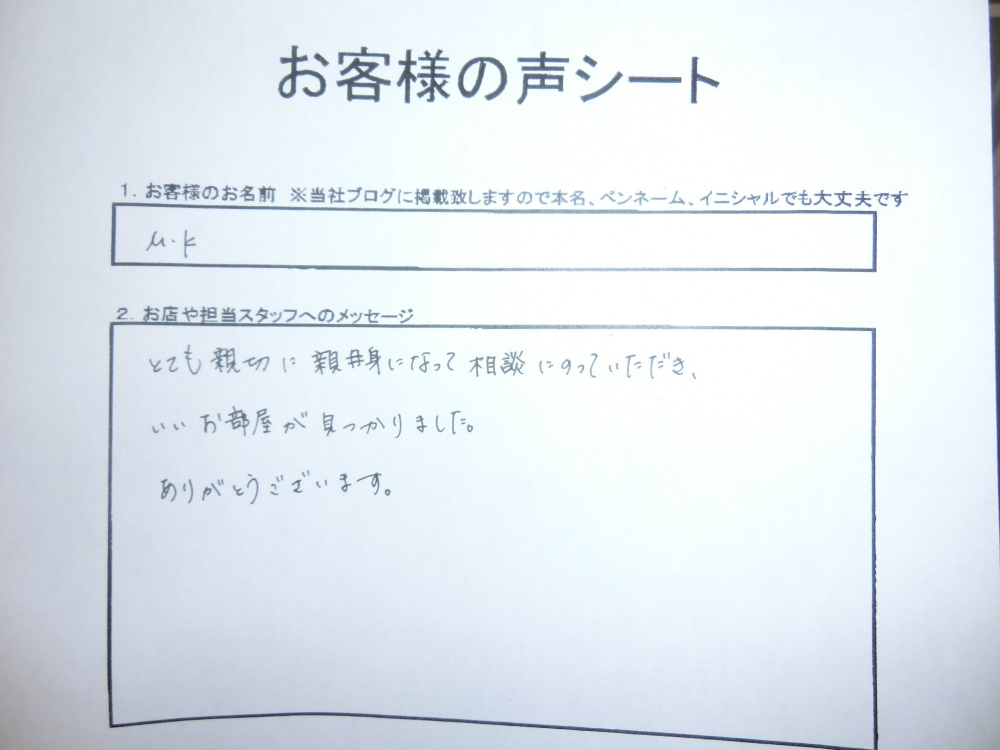 お客様の声シート
1. お客様のお名前 ※当社ブログに掲載致しますので本名、ペンネーム、イニシャルでも大丈夫です
M.K
2. お店や担当スタッフへのメッセージ
とても親切に親井身になって相談にのっていただき、
いいお部屋が見つかりました。
ありがとうございます。